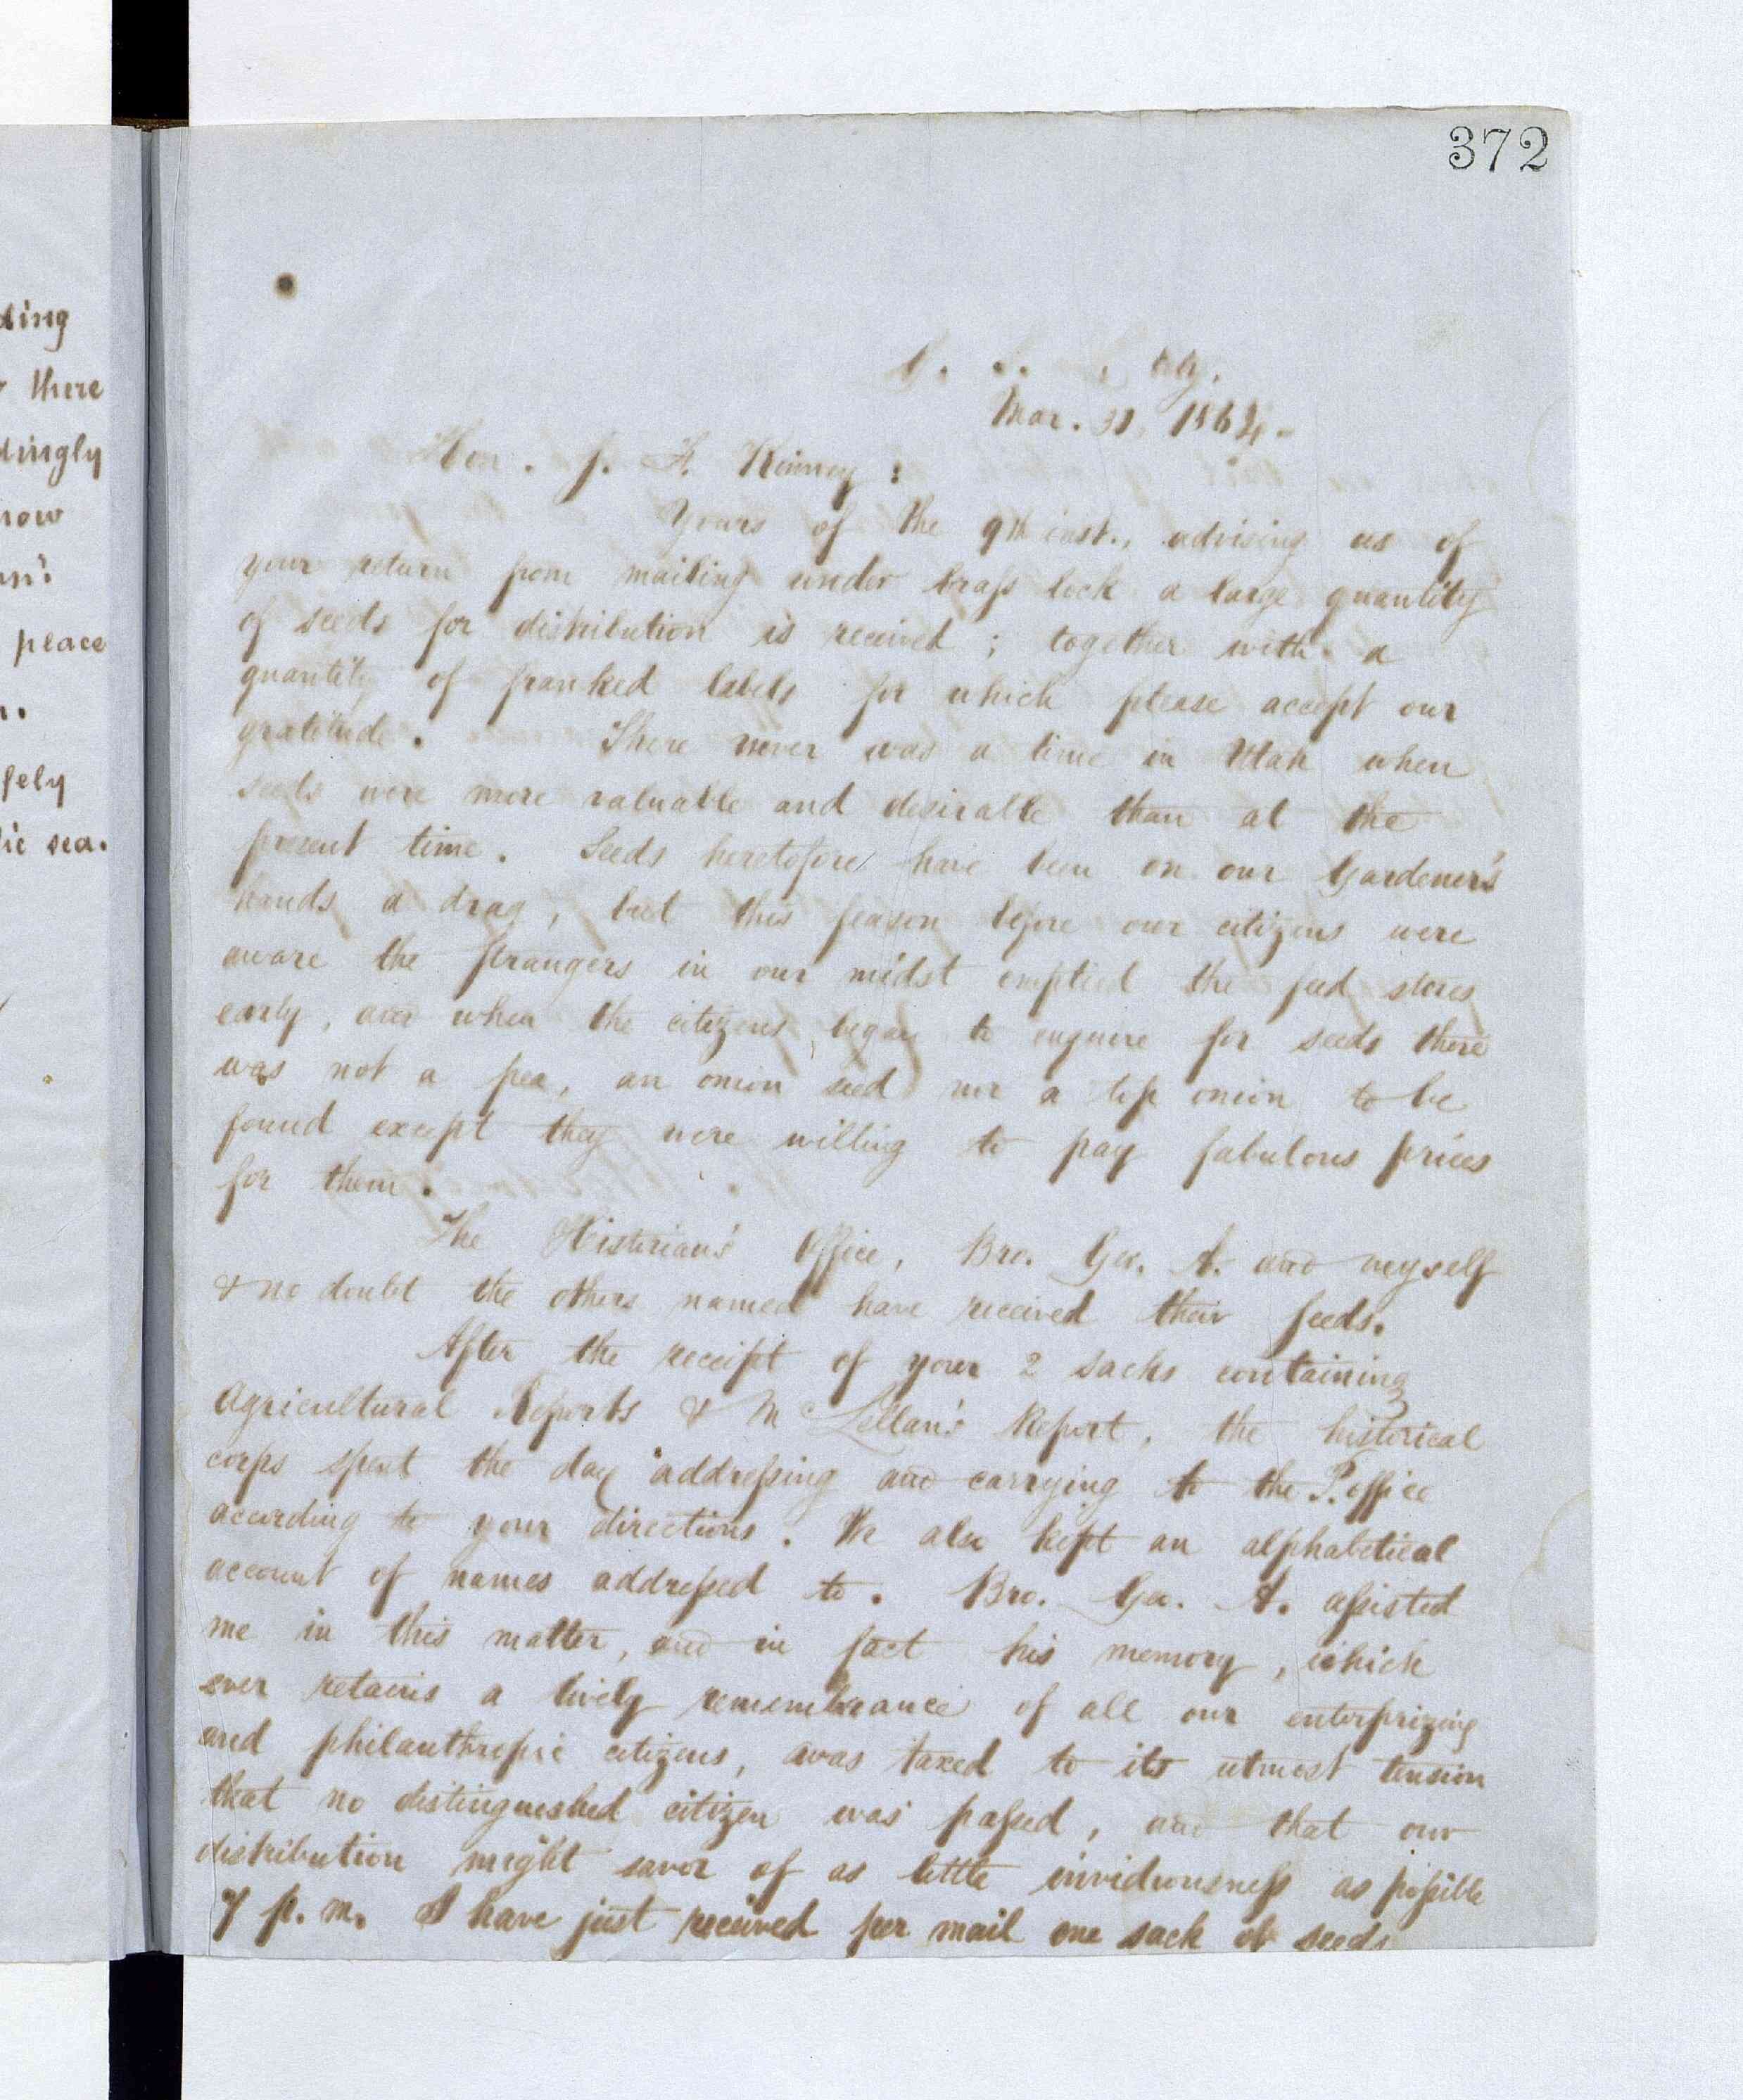 ding
there
dingly
now
place
fely
sea.
372
G. City.
Mar. 31, 1864.
Hon. J. F. Kinney:
Yours of the 9th inst., advising us of
your return from mailing under brass lock a large quantity
of seeds for distribution is received; together with a
quantity of franked labels for which please accept our
gratitude. There never was a time in Utah when
seeds were more valuable and desirable than at the
present time. Seeds heretofore have been on our Gardener's
hands a drag, but this season before our citizens were
aware the strangers in our midst emptied the seed stores
early, and when the citizens began to enquire for seeds there
was not a pea, an onion seed nor a top onion to be
found except they were willing to pay fabulous prices
for them.
The Historian's Office, Bro. Geo. A. and myself
& no doubt the others named have received their seeds.
After the receipt of your 2 sacks containing
Agricultural Reports & McLellan's Report, the historical
corps spent the day addressing and carrying to the P. office
according to your directions. We also kept an alphabetical
account of names addressed to. Bro. Geo. A. assisted
me in this matter, and in fact his memory, which
ever retains a lively remembrance of all our enterprizing
and philanthropic citizens, was taxed to its utmost tension
that no distinguished citizen was passed, and that our
distribution might savor of as little invidiousness as possible
7 p.m. I have just received per mail one sack of seeds